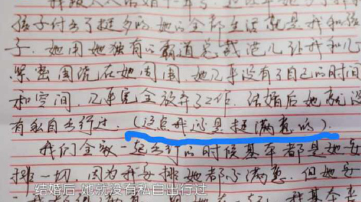 孩子付出了挺多的 她的全部生活就是我和孩
子. 她用她独有的霸道总裁范儿 让我和儿
紧紧围绕在她周围 她几乎没有了自己的时间
和空间, 几乎完全放弃了工作. 结婚后她就没
有私自出行过. (这点我还是挺满意的)
我们全家一起出行的时候基本都是她安
排一切, 因为我安排她都不满意. 但她安
结婚后 她就没有私自出行过